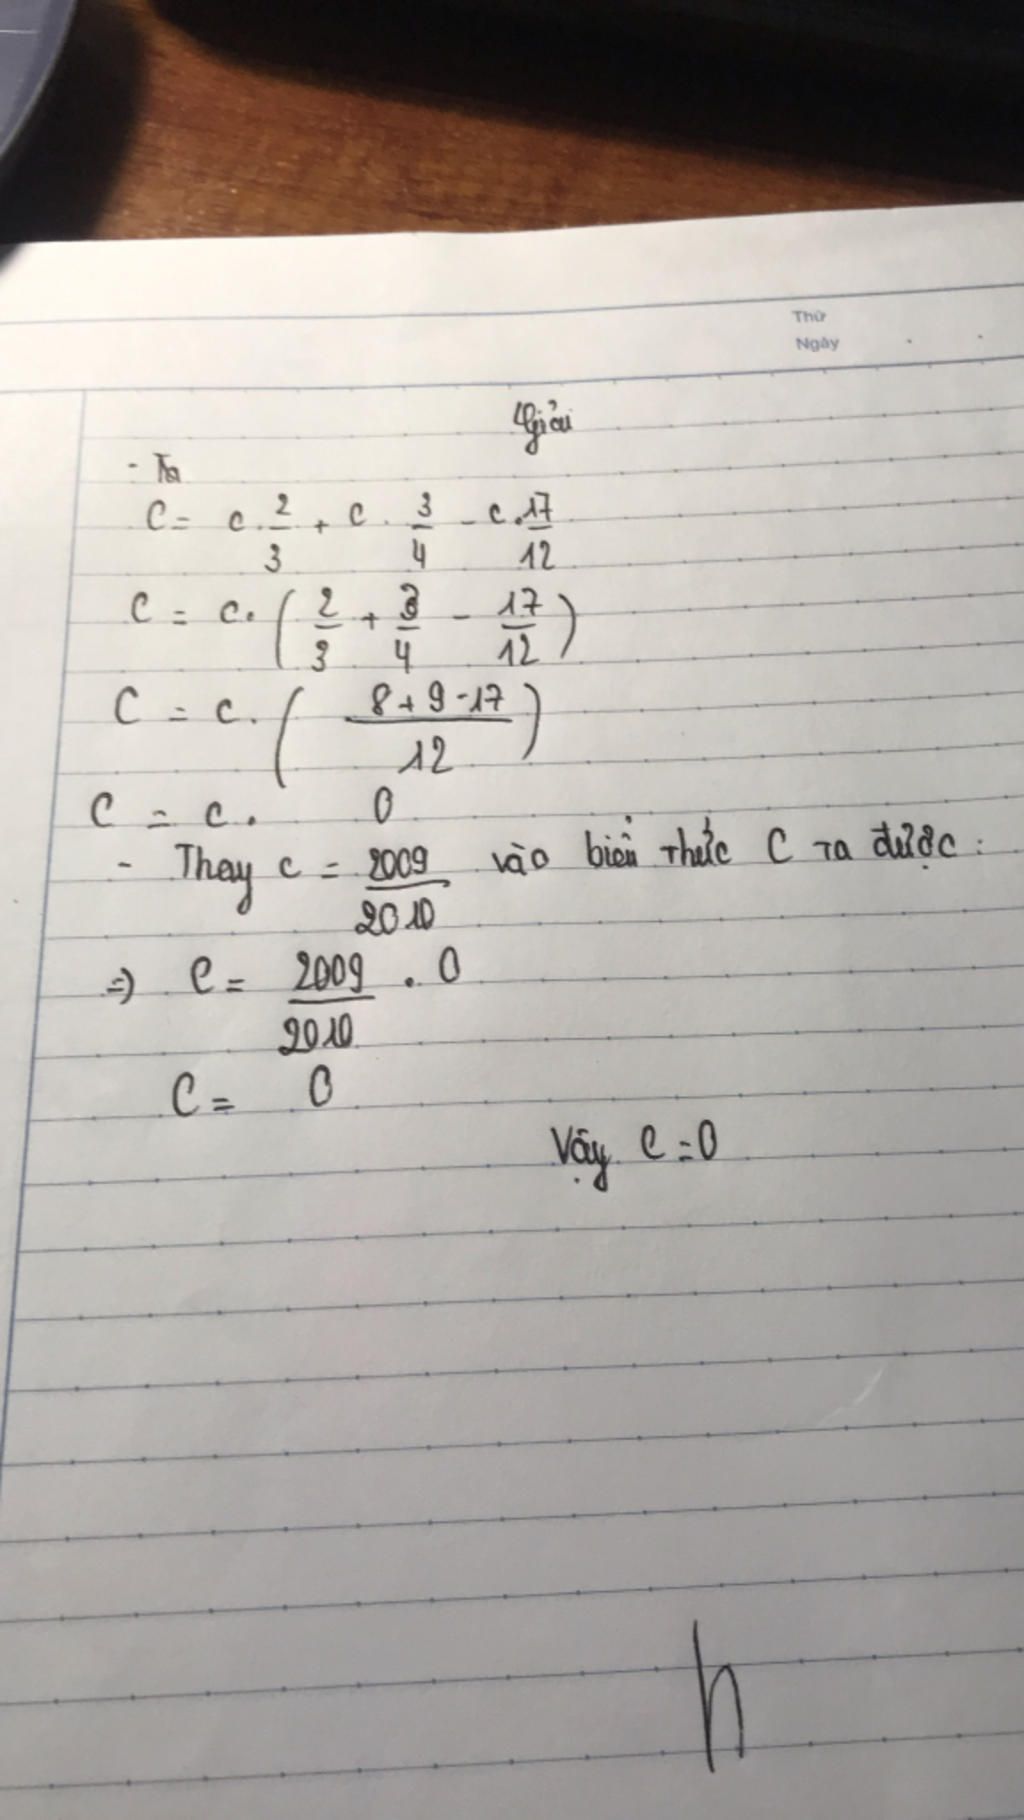 Thứ
Ngày
Giải
- Ta
C = c . 2/3 + c . 3/4 - c . 17/12
C = c . ( 2/3 + 3/4 - 17/12 )
C = c . ( (8 + 9 - 17)/12 )
C = c . 0
- Thay c = 2009/2010 vào biểu thức C ta được :
=> C = 2009/2010 . 0
C = 0
Vậy C = 0
h